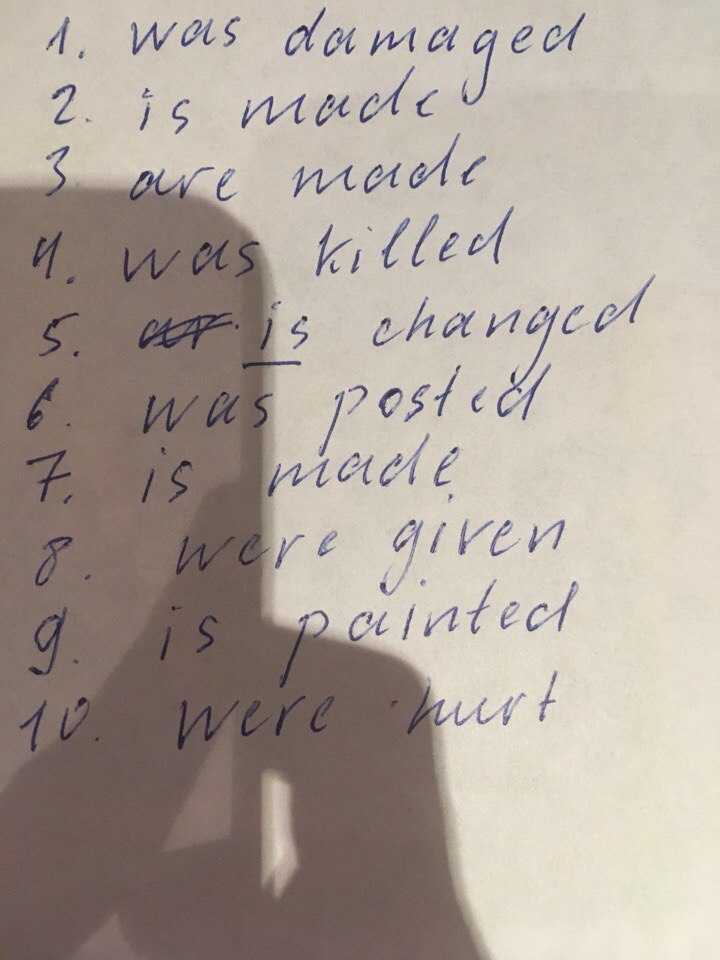 1. was damaged
2. is made
3. are made
4. was killed
5. is changed
6. was posted
7. is made
8. were given
9. is painted
10. were hurt